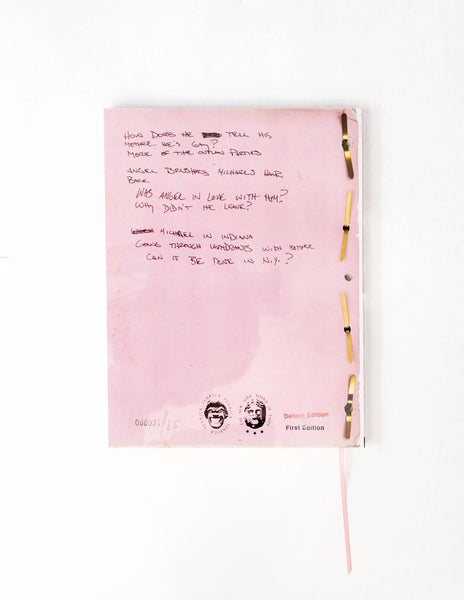 HOW DOES HE TELL HIS
MOTHER HE'S GAY?
MORE OF THE OUTLAW PARTIES
ANGEL BRUSHES MICHAEL'S HAIR
BACK.
WAS ANGEL IN LOVE WITH HIM?
WHY DIDN'T HE LEAVE?
MICHAEL IN INDIANA
GOING THROUGH WITHDRAWLS WITH MOTHER
CAN IT BE DONE IN N.Y.?
000001/15
Deluxe Edition
First Edition